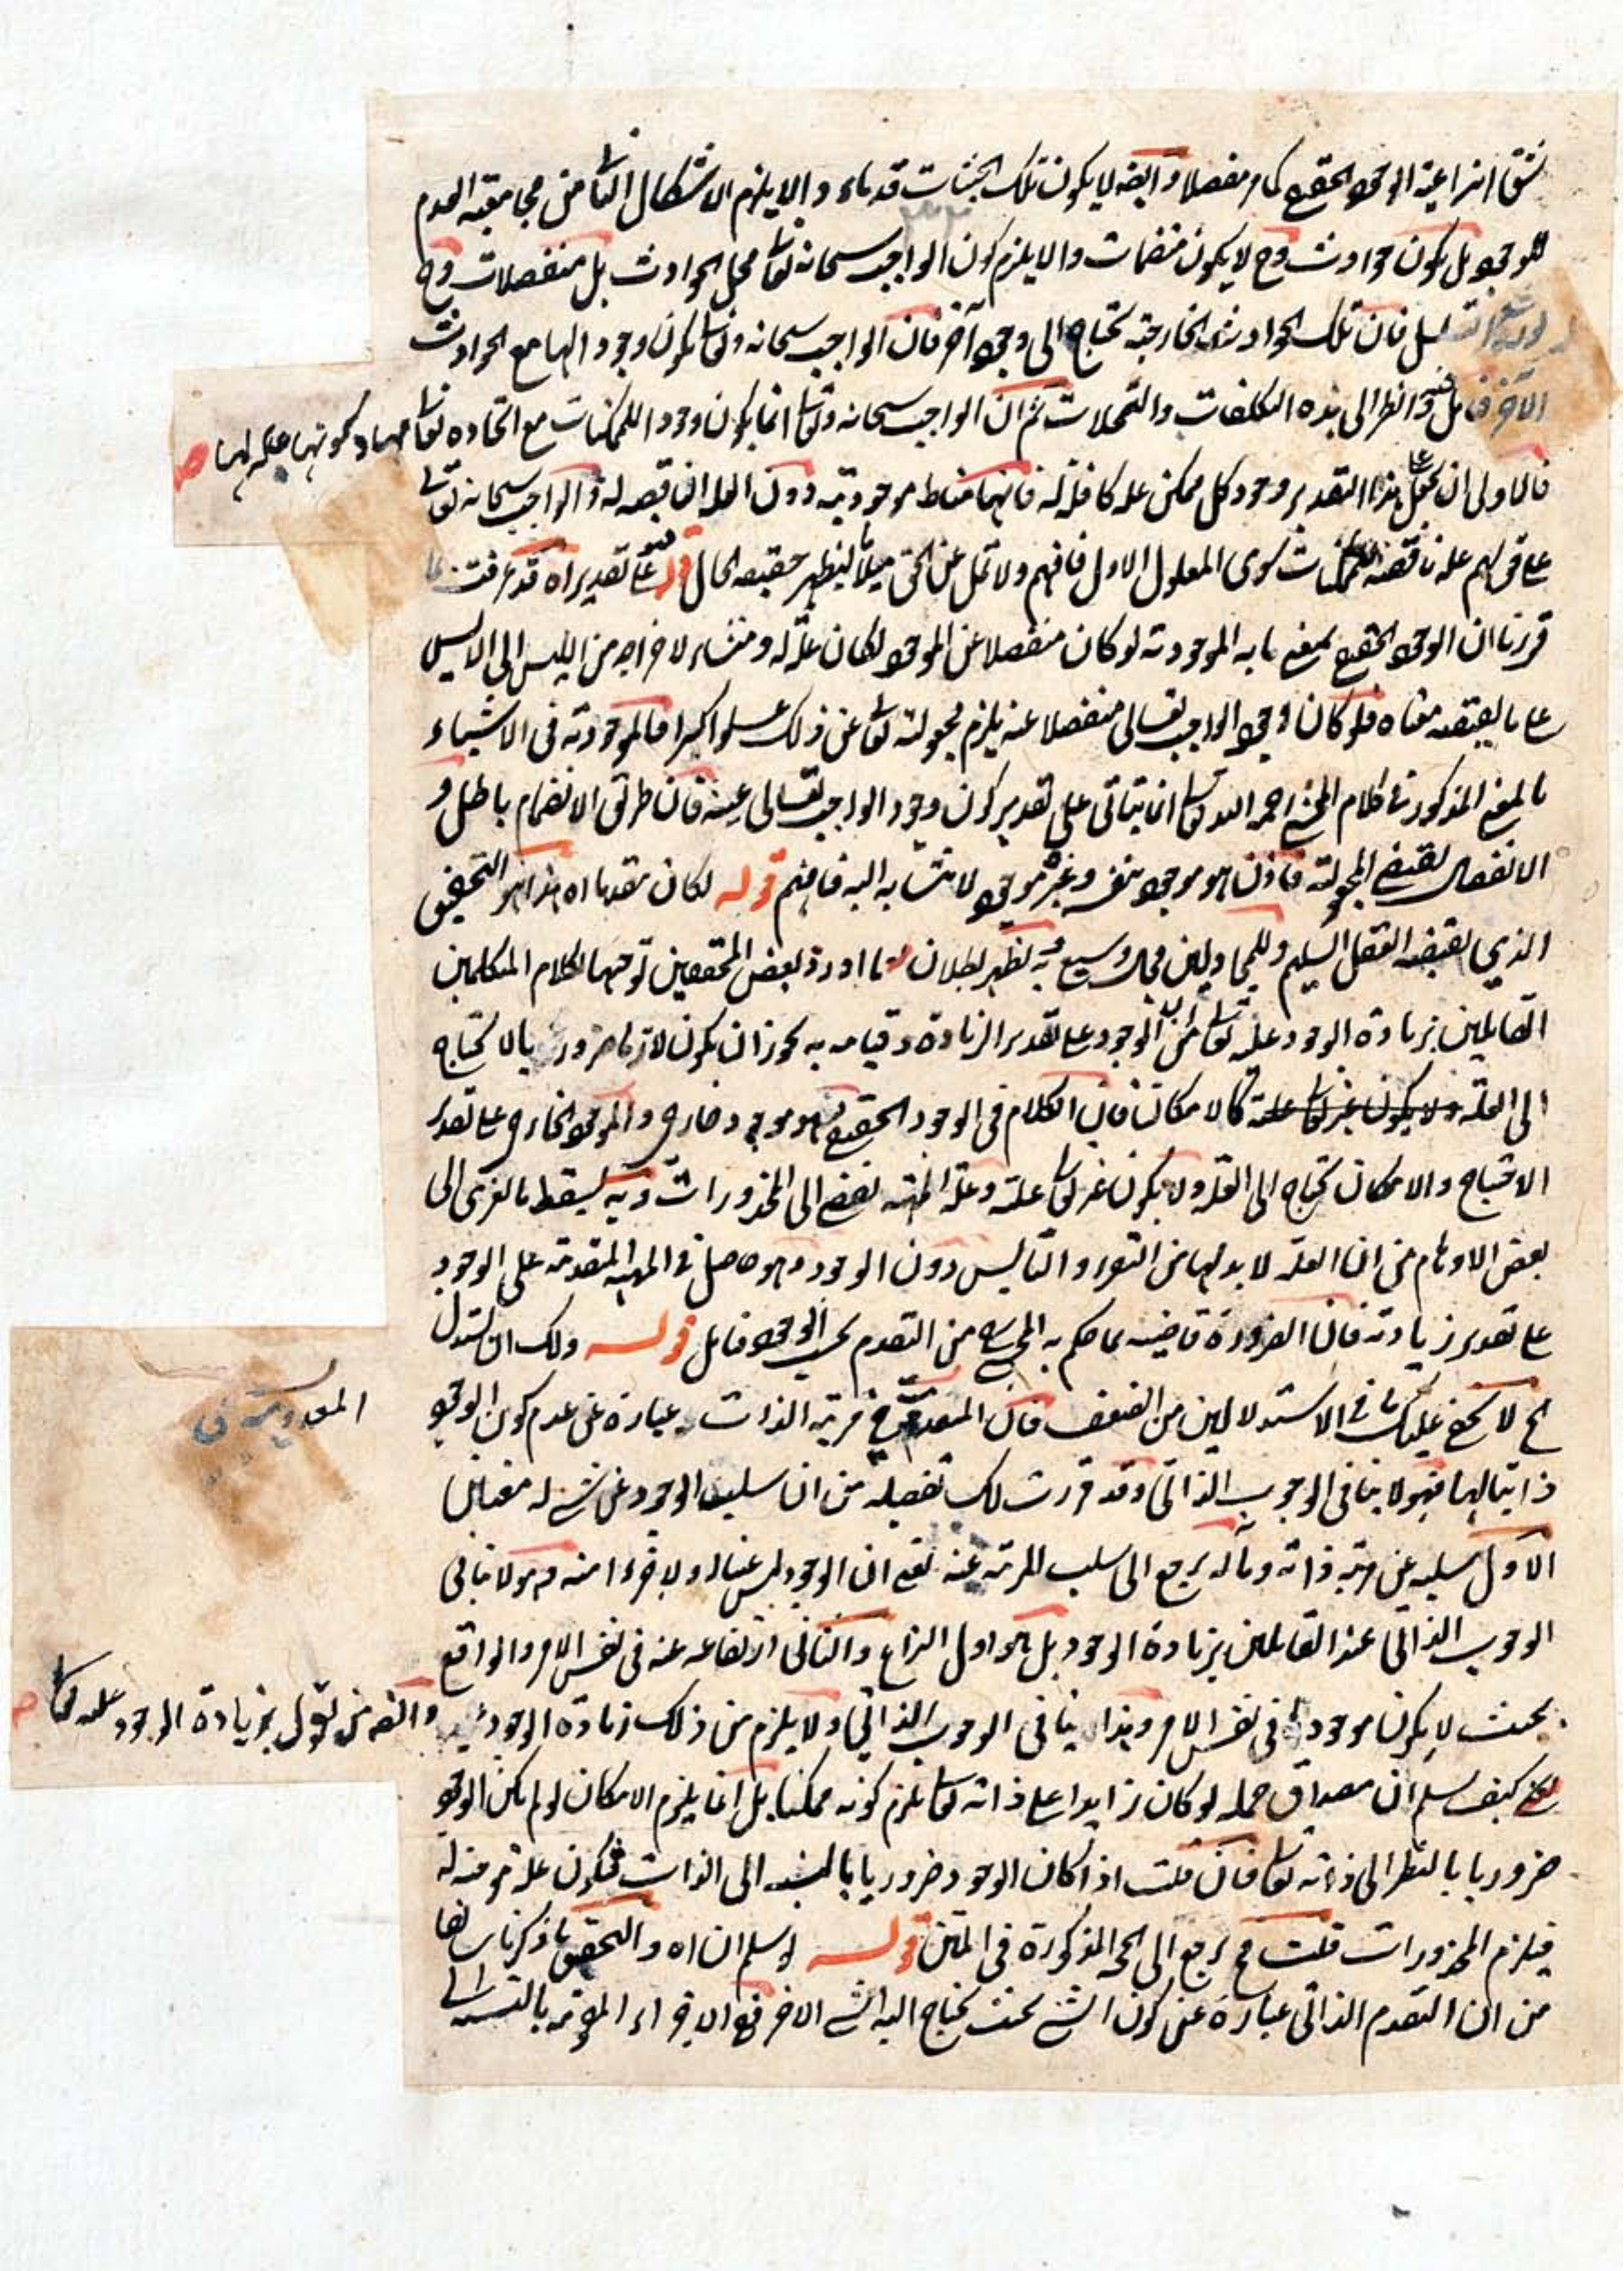 شق انتزاعية الوجود الحقيقي كما مر مفصلا وايضا لا يكون تلك الحيثيات قدماء والا يلزم الاشكال الثامن مجامعة العدم
للوجود بل يكون حوادث وح لا يكون منضمات والا يلزم كون الواجب سبحانه تعا محل الحوادث بل منفصلات وح
فان تلك الحوادث الخارجية تحتاج الى وجود آخر فان الواجب سبحانه وتعا يكون وجودا لها مع الحوادث
الآخر وانظر الى هذه التكلفات والتمحلات ثم ان الواجب سبحانه وتعا انما يكون وجود اللممكنات مع اتحاده تعا معها وكونها علة لها صح
فالاولى ان على هذا التقدير وجود كل ممكن علة كافلة له فانها مناط موجوديته دون العلة الناقصة له والواجب سبحانه تعا
على قولهم علة ناقصة للممكنات سوى المعلول الاول فافهم ولا تمل عن الحق ميلا ليظهر حقيقة الحال قوله على تقدير اه قد عرفت مما
قررنا ان الوجود الحقيقي بمعنى ما به الموجودية لو كان منفصلا عن الموجود لكان علة له ومنشاء لاخراجه من الليس الى الايس
على ما يقتضيه معناه فلو كان وجود الواجب تعالى منفصلا عنه يلزم مجعوليته تعا عن ذلك علوا كبيرا فالموجودية في الاشياء
بالمعنى المذكور في كلام المحشي رحمه الله تعا انما يتاتى على تقدير كون وجود الواجب تعالى عينه فان طريق الانضمام باطل و
الانفصال يقتضي المجعولية فاذن هو موجود بنفسه وغيره موجود لانتسابه اليه فافهم قوله لكان متقدما اه هذا هو التحقيق
الذي يقتضيه العقل السليم وللمجادلين مجال وسيع وبه يظهر بطلان ما اورده بعض المحققين توجيها لكلام المتكلمين
القائلين بزيادة الوجود عليه تعا من ان الوجود على تقدير الزيادة وقيامه به يجوز ان يكون لازما ضروريا لا يحتاج
الى العلة ولا يكون غير تعا علة كالامكان فان الكلام في الوجود الحقيقي فهو موجود خارجي والموجود الخارجي على تقدير
الاحتياج والامكان يحتاج الى العلة ولا يكون غيره تعا علة وعلة المهية تفضي الى المحذورات وبه يسقط ما تعزى الى
بعض الاوهام من ان العلة لا بد لها من التقرر والتأيس دون الوجود وهو حاصل في المهية المتقدمة على الوجود
على تقدير زيادته فان الضرورة قاضية بما حكم به المحشي من التقدم بحسب الوجود فتامل قوله ولك ان تستدل
الخ لا يخفى عليك ما في الاستدلالين من الضعف فان المعدومية في مرتبة الذات عبارة عن عدم كون الوجود
المعدومية في
ذاتيا لها فهو لا ينافي الوجوب الذاتي وقد قررت لك تفصيله من ان سلب الوجود عن شيء له معنيان
الاول سلبه عن مرتبة ذاته ومآله يرجع الى سلب المرتبة عنه يعني ان الوجود ليس عينا له ولا جزءا منه وهو لا ينافي
الوجوب الذاتي عند القائلين بزيادة الوجود بل هو اول النزاع والثاني ارتفاعه عنه في نفس الامر والواقع
بحيث لا يكون موجودا في نفس الامر وهذا ينافي الوجوب الذاتي ولا يلزم من ذلك زيادة الوجود وايضا من يقول بزيادة الوجود عليه تعا صح
كيف يسلم ان مصداق حمله لو كان زايدا على ذاته تعا يلزم كونه ممكنا بل انما يلزم الامكان لو لم يكن الوجود
ضروريا بالنظر الى ذاته تعا فان قلت اذا كان الوجود ضروريا بالنسبة الى الذات فيكون علة موجبة له
فيلزم المحذورات قلت فح يرجع الى الحجة المذكورة في المتن قوله لا يسلم ان اه والتحقيق ما ذكرنا سابقا
من ان التقدم الذاتي عبارة عن كون الشيء بحيث يحتاج اليه الشيء الاخر